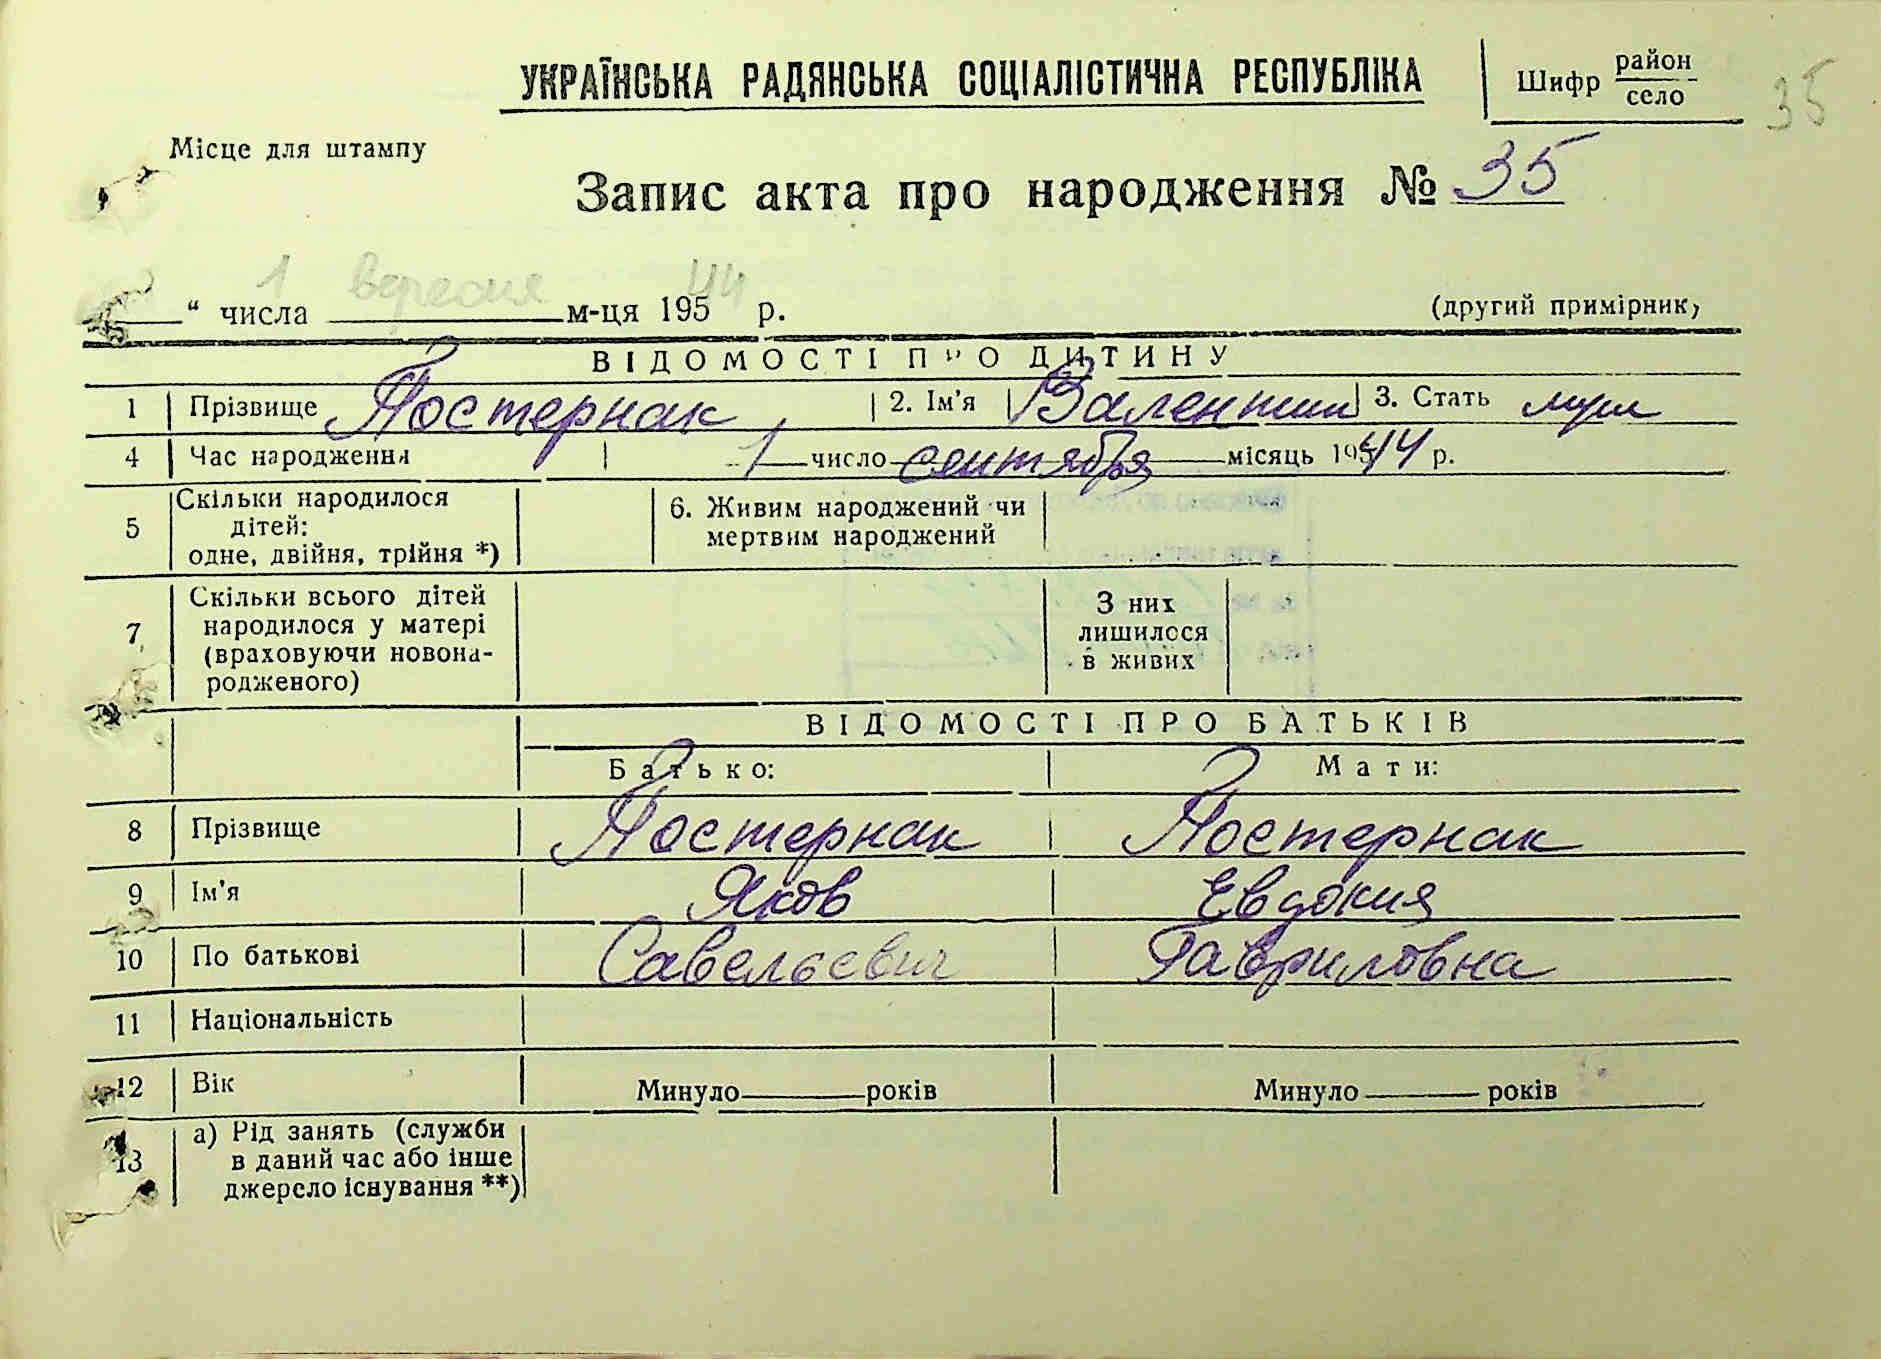 УКРАЇНСЬКА РАДЯНСЬКА СОЦІАЛІСТИЧНА РЕСПУБЛІКА
Шифр район
село
35
Місце для штампу
Запис акта про народження № 35
1 вересня 44
“ числа м-ця 195 р. (другий примірник)
ВІДОМОСТІ ПРО ДИТИНУ
1 Прізвище Постернак 2. Ім'я Валентин 3. Стать муж
4 Час народження 1 число сентября місяць 1944 р.
5 Скільки народилося дітей: одне, двійня, трійня *) 6. Живим народжений чи мертвим народжений
7 Скільки всього дітей народилося у матері (враховуючи новонародженого) З них лишилося в живих
ВІДОМОСТІ ПРО БАТЬКІВ
Батько: Мати:
8 Прізвище Постернак Постернак
9 Ім'я Яков Евдокия
10 По батькові Савельевич Гавриловна
11 Національність
12 Вік Минуло років Минуло років
13 а) Рід занять (служби в даний час або інше джерело існування **)